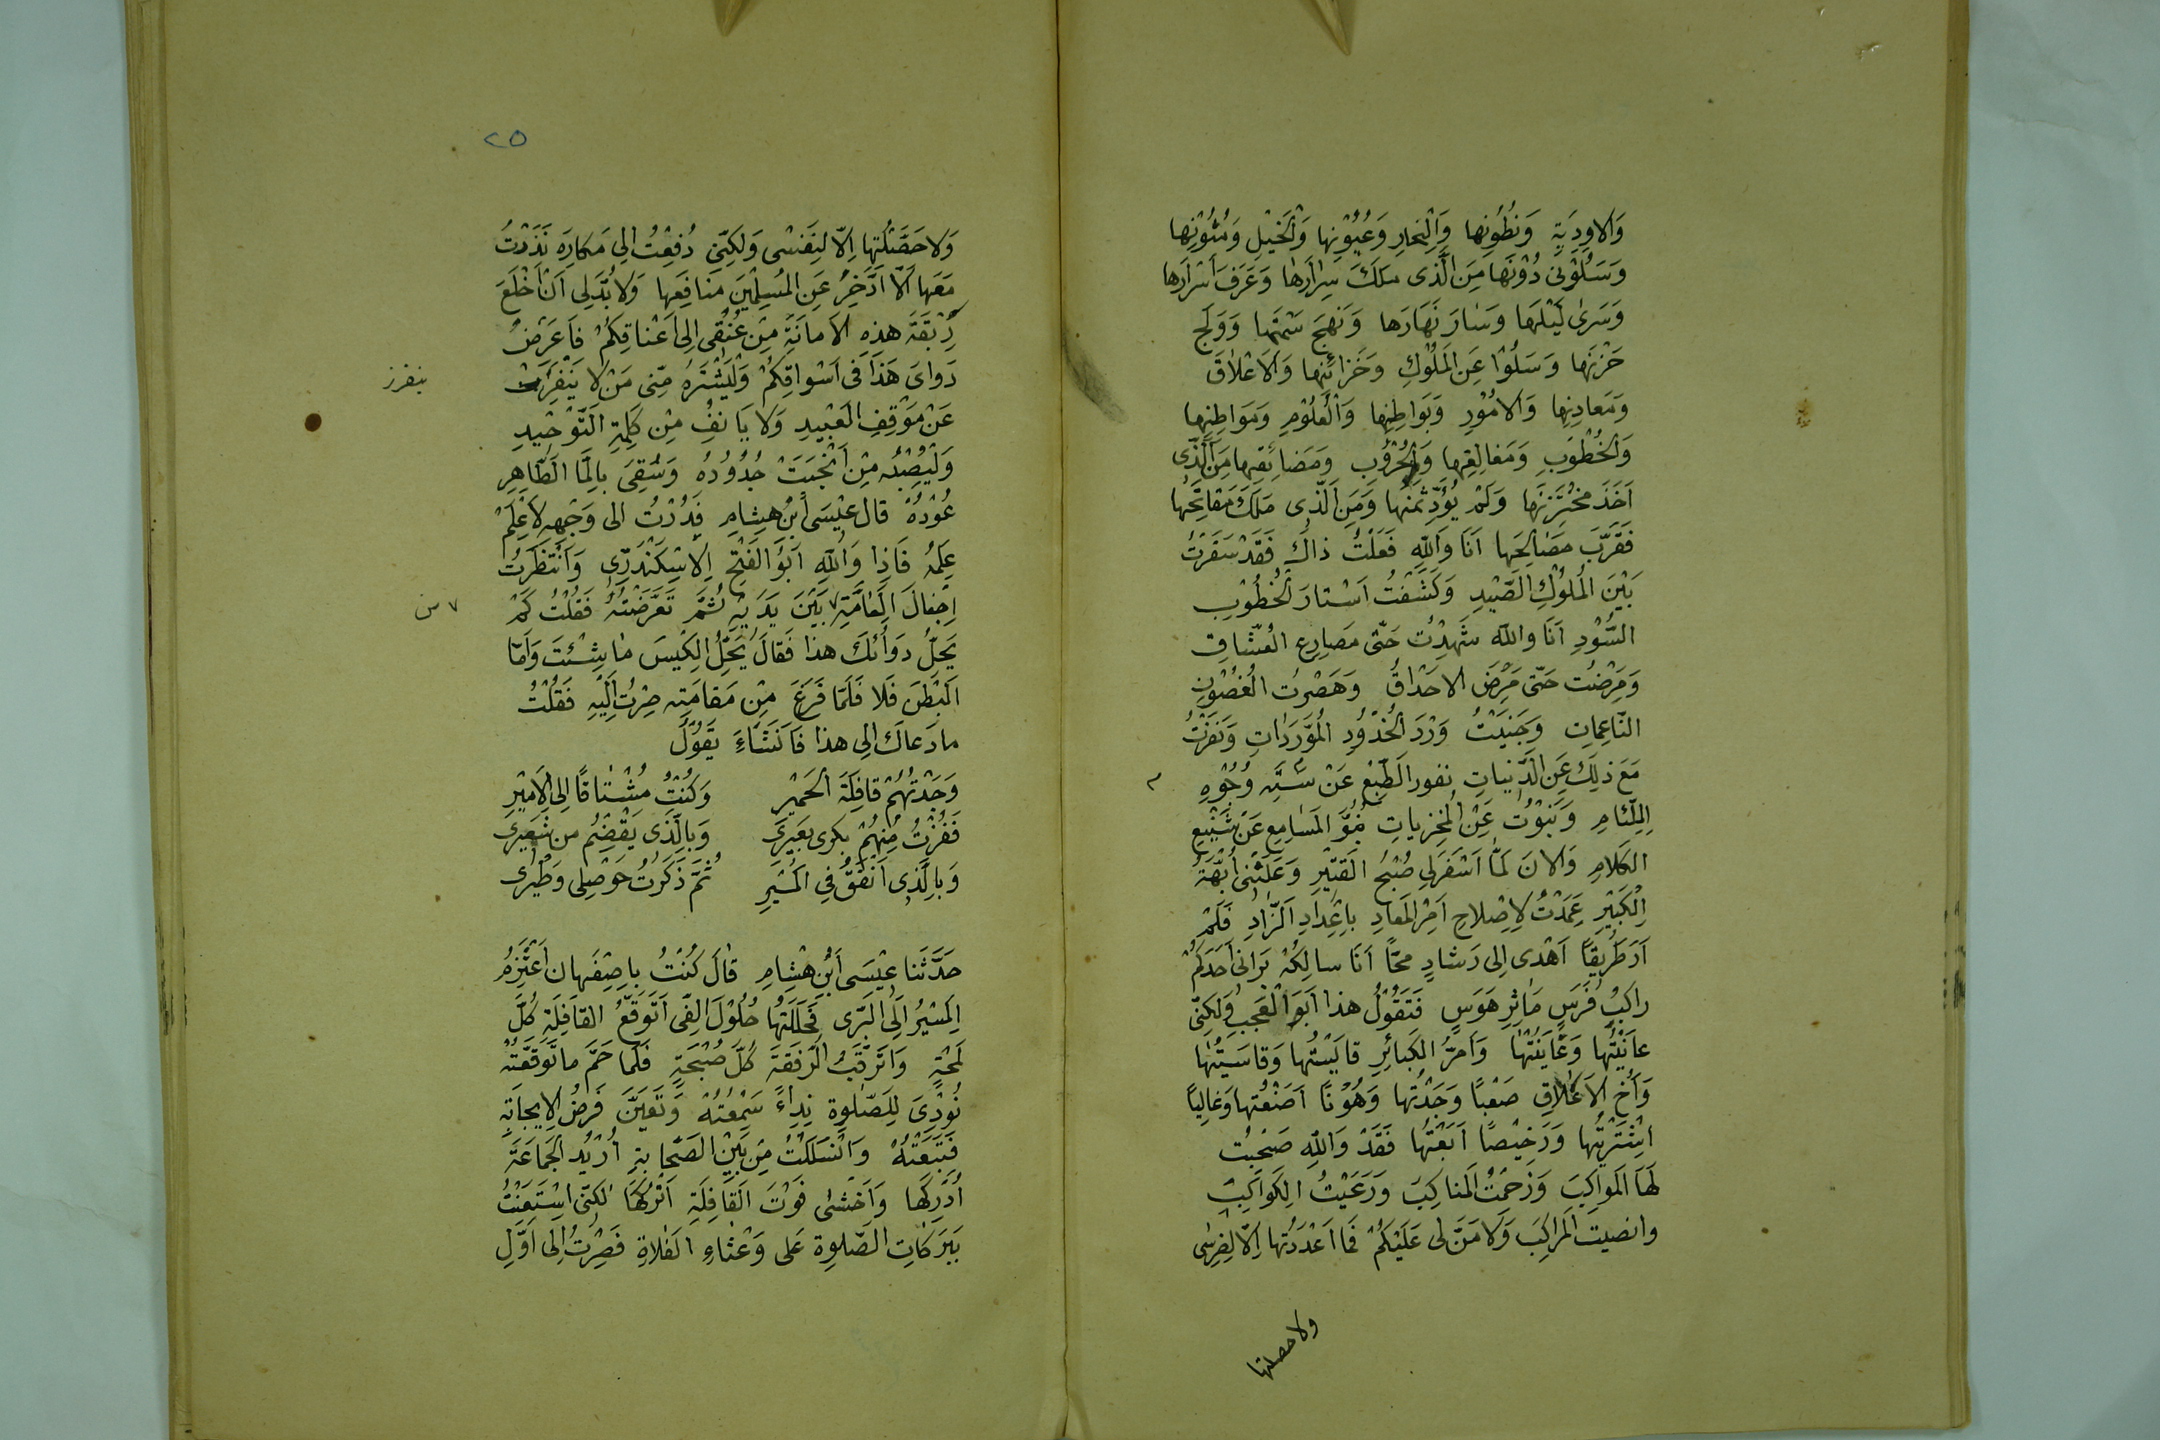 وَالاوِدِيَةِ وَبُطُونِها وَالبِحارِ وَعُيُونِها وَالْخَيْلِ وَمُتُونِها
وَسَلُوْنى دُوْنَها مَنِ الَّذى مَلَكَ سِرارَها وَعَرَفَ اَسْرارَها
وَسَرىٰ لَيْلَها وَسارَ نَهَارَها وَنَهَجَ سَمْتَها وَوَلَج
حَرَّتَها وَسَلُوْا عَنِ المُلُوْكِ وَخَزائِنِها وَالاَعْلاقِ
وَمَعادِنِها وَالامُوْرِ وَبَواطِنِها وَالْعُلُوْمِ وَمَوَاطِنِها
وَالْخُطُوبِ وَمَغالِقِها وَالحُرُوبِ وَمَضائِقِها مَنِ الَّذى
اَخَذَ مخْتَزنَها وَلَمْ يُؤَدِّ ثمنَها وَمَنِ الَّذِى مَلَكَ مَفاتِحَها
فَقَرَّبَ مَصَالِحَها اَنَا وَاللّٰهِ فَعَلْتُ ذاكَ فَقَدْ سَفَرْتُ
بَيْنَ المُلُوْكِ الصِّيْدِ وَكَشَفْتُ اَسْتارَ الخُطُوْبِ
السُّوْدِ اَنَا واللّٰه شَهِدْتُ حَتّىٰ مَصَارِعِ العُشّاقِ
وَمَرِضْتُ حَتّىٰ مَرَضَ الاحْداقُ وَهَصَرْتُ الغُصُوْنِ
النّاعِماتِ وَجَنَيْتُ وَرْدَ الخُدُودِ المُوَرَّدَاتِ وَنَفَرْتُ
مَعَ ذلِكَ عَنِ الدَّنيات نفور الطَّبْعِ عَنْ سَنِّه وُجُوْهِ م
اللِئّامِ وَنَبَوْتُ عَنِ المُخزِياتِ نُبُوَّ المَسَامِعِ عَنْ شَنِيْعِ
الكَلامِ وَالانَ لَمّا اَسْفَرَلى صُبْحُ القَتيْرِ وَعَلَتْنى اُبَّهَةُ
الِكَبيْرِ عَمَدْتُ لِاِصْلاحِ اَمْرِ المَعادِ بِاِعْدادِ الزَّادِ فَلَمْ
اَرَ طَرِيقًا اَهْدى اِلى رَشادٍ ممّا اَنَا سالِكُهُ يَرانى اَحَدَكُمْ
راكِبَ فَرَسٍ ماثِر هَوَسٍ فَتَقُوْلُ هذا اَبَوَ العَجَبِ وَلكِنّى
عانَيْتُها وَعايَنْتُها وَاَمرُّ الكَبائِرِ قايَسْتُها وَقاسَيْتُها
وَاَخ الاَعْلاقِ صَعْبًا وَجَدْتُها وَهُوْنًا اَضَعْتُها وَغاليًا
اشْتَرَيْتُها وَرَخِيْصًا اَبَعْتُها فَقَدْ وَاللّٰهِ صَحِبْتُ
لَهَا المَواكِبَ وَزَحَمْتُ المَناكِبَ وَرَعَيْتُ الكَواكِبَ
وانضيت المَراكِبَ وَلا مَنَّ لى عَلَيْكُمْ فَما اَعْدَدْتُها اِلّا لِغِرسى
ولا حصلتها
٢٥
وَلا حَصَّلْتُها اِلّا لِنَفسْى وَلكِنّى دُفِعْتُ اِلى مَكارِهَ نَذَرْتُ
مَعَها اَلّا اَدَّخِرُ عَنِ المُسلِمينَ مَنافِعَها وَلا بُدَّلى اَنْ اَخْلَعَ
رِبْقَةَ هذِهِ الاَمانَةِ مِنْ عُنُقى اِلى اَعْناقِكُمْ فاَعرَضُ
دَواىَ هَذا فى اَسْواقِكُمْ وَلْيَشْتَرِهْ مِنّى مَنْ لا يَتَقَرَّزُ يتقزز
عَنْ مَوْقِفِ العَبِيْدِ وَلا يَانفُ مِنْ كَلِمَةِ التَّوْحِيْدِ
وَلْيُصِبْه مَنْ اَنْجَبَتْ جُدُوْدُهُ وَسُقِىَ بالِمَا الطّاهِرِ
عُوْدُهُ قال عيْسَى ابْنُ هِشامٍ فَدُرْتُ الى وَجْهِه لاَعْلَمَ
عِلمَهُ فَاِذا وَاللّٰهِ اَبُوْ الفَتْحِ الاِسْكَنْدَرِّى وَانْتَظَرْتُ
اِجْفالَ العَامَّةِ ٧ بَيْنَ يَدَيْهِ ثُمَّ تَعَرَّضْتُهُ فَقُلْتُ كَمْ ٧ من
يَحِلُّ دَوأئكَ هذا فَقالَ يَحِلُّ الكِيْسَ ما شِئْتَ وَاَمّا
البَطَنَ فَلا فَلَمّا فَرَغَ مِنْ مَقامَتِه صِرْتُ اِلَيْهِ فَقُلْتُ
مادَعاكَ اِلى هذا فَانَشاءَ يَقُوْلُ
وَجَدْتُهُمْ قافِلَةَ الْحَمْيِر وَكُنْتُ مُشْتاقًا اِلى الاَمِيْرِ
فَفُزْتُ مِنهُمْ بكرى بعَيرى وَبالَّذى يَقْضِمُ من شَعِيرى
وَبِالَّذِى اَنْفَقُ فِي المَسَيرِ ثُمَّ ذَكَرْتُ حَوْصِلى وَطَيْرى
حَدَّثَنا عِيْسَى ابْنِ هِشامٍ قالَ كُنْتُ باِصِفَهان اَعْتَزِمُ
المَسْيُرَ اِلَى الرَّى فَحَلَلْتُها حُلُوْلَ الفَّى اَتَوَقَّعُ القافِلَةِ كُلَّ
لَمْحَةٍ وَاَتَرقَّبُ الرّفقَةَ كُلَّ صُبْحَةٍ فَلَمّا حَمَّ ما تَوَقَّعْتُهُ
نُوْدِىَ لِلصّلٰوةِ نِداءً سَمِعْتُهُ وَتَعَيَّنَ فَرضُ الاِجابَةِ
فَتَبِعْتُهُ وَانْسَلَلْتُ مِنْ بَيْنِ الصَّحابةِ اُرْيدُ الجَماعَةَ
اُدْرِكُها وَاَخشىٰ فَوْتَ القافِلَةِ اَتْرُكُها لٰكِنّى اسْتَعَنْتُ
بَبَرَكاتِ الصَّلٰوةِ عَلى وَعْثاءِ الفَلاةِ فَصِرْتُ اِلى اَوَّلِ